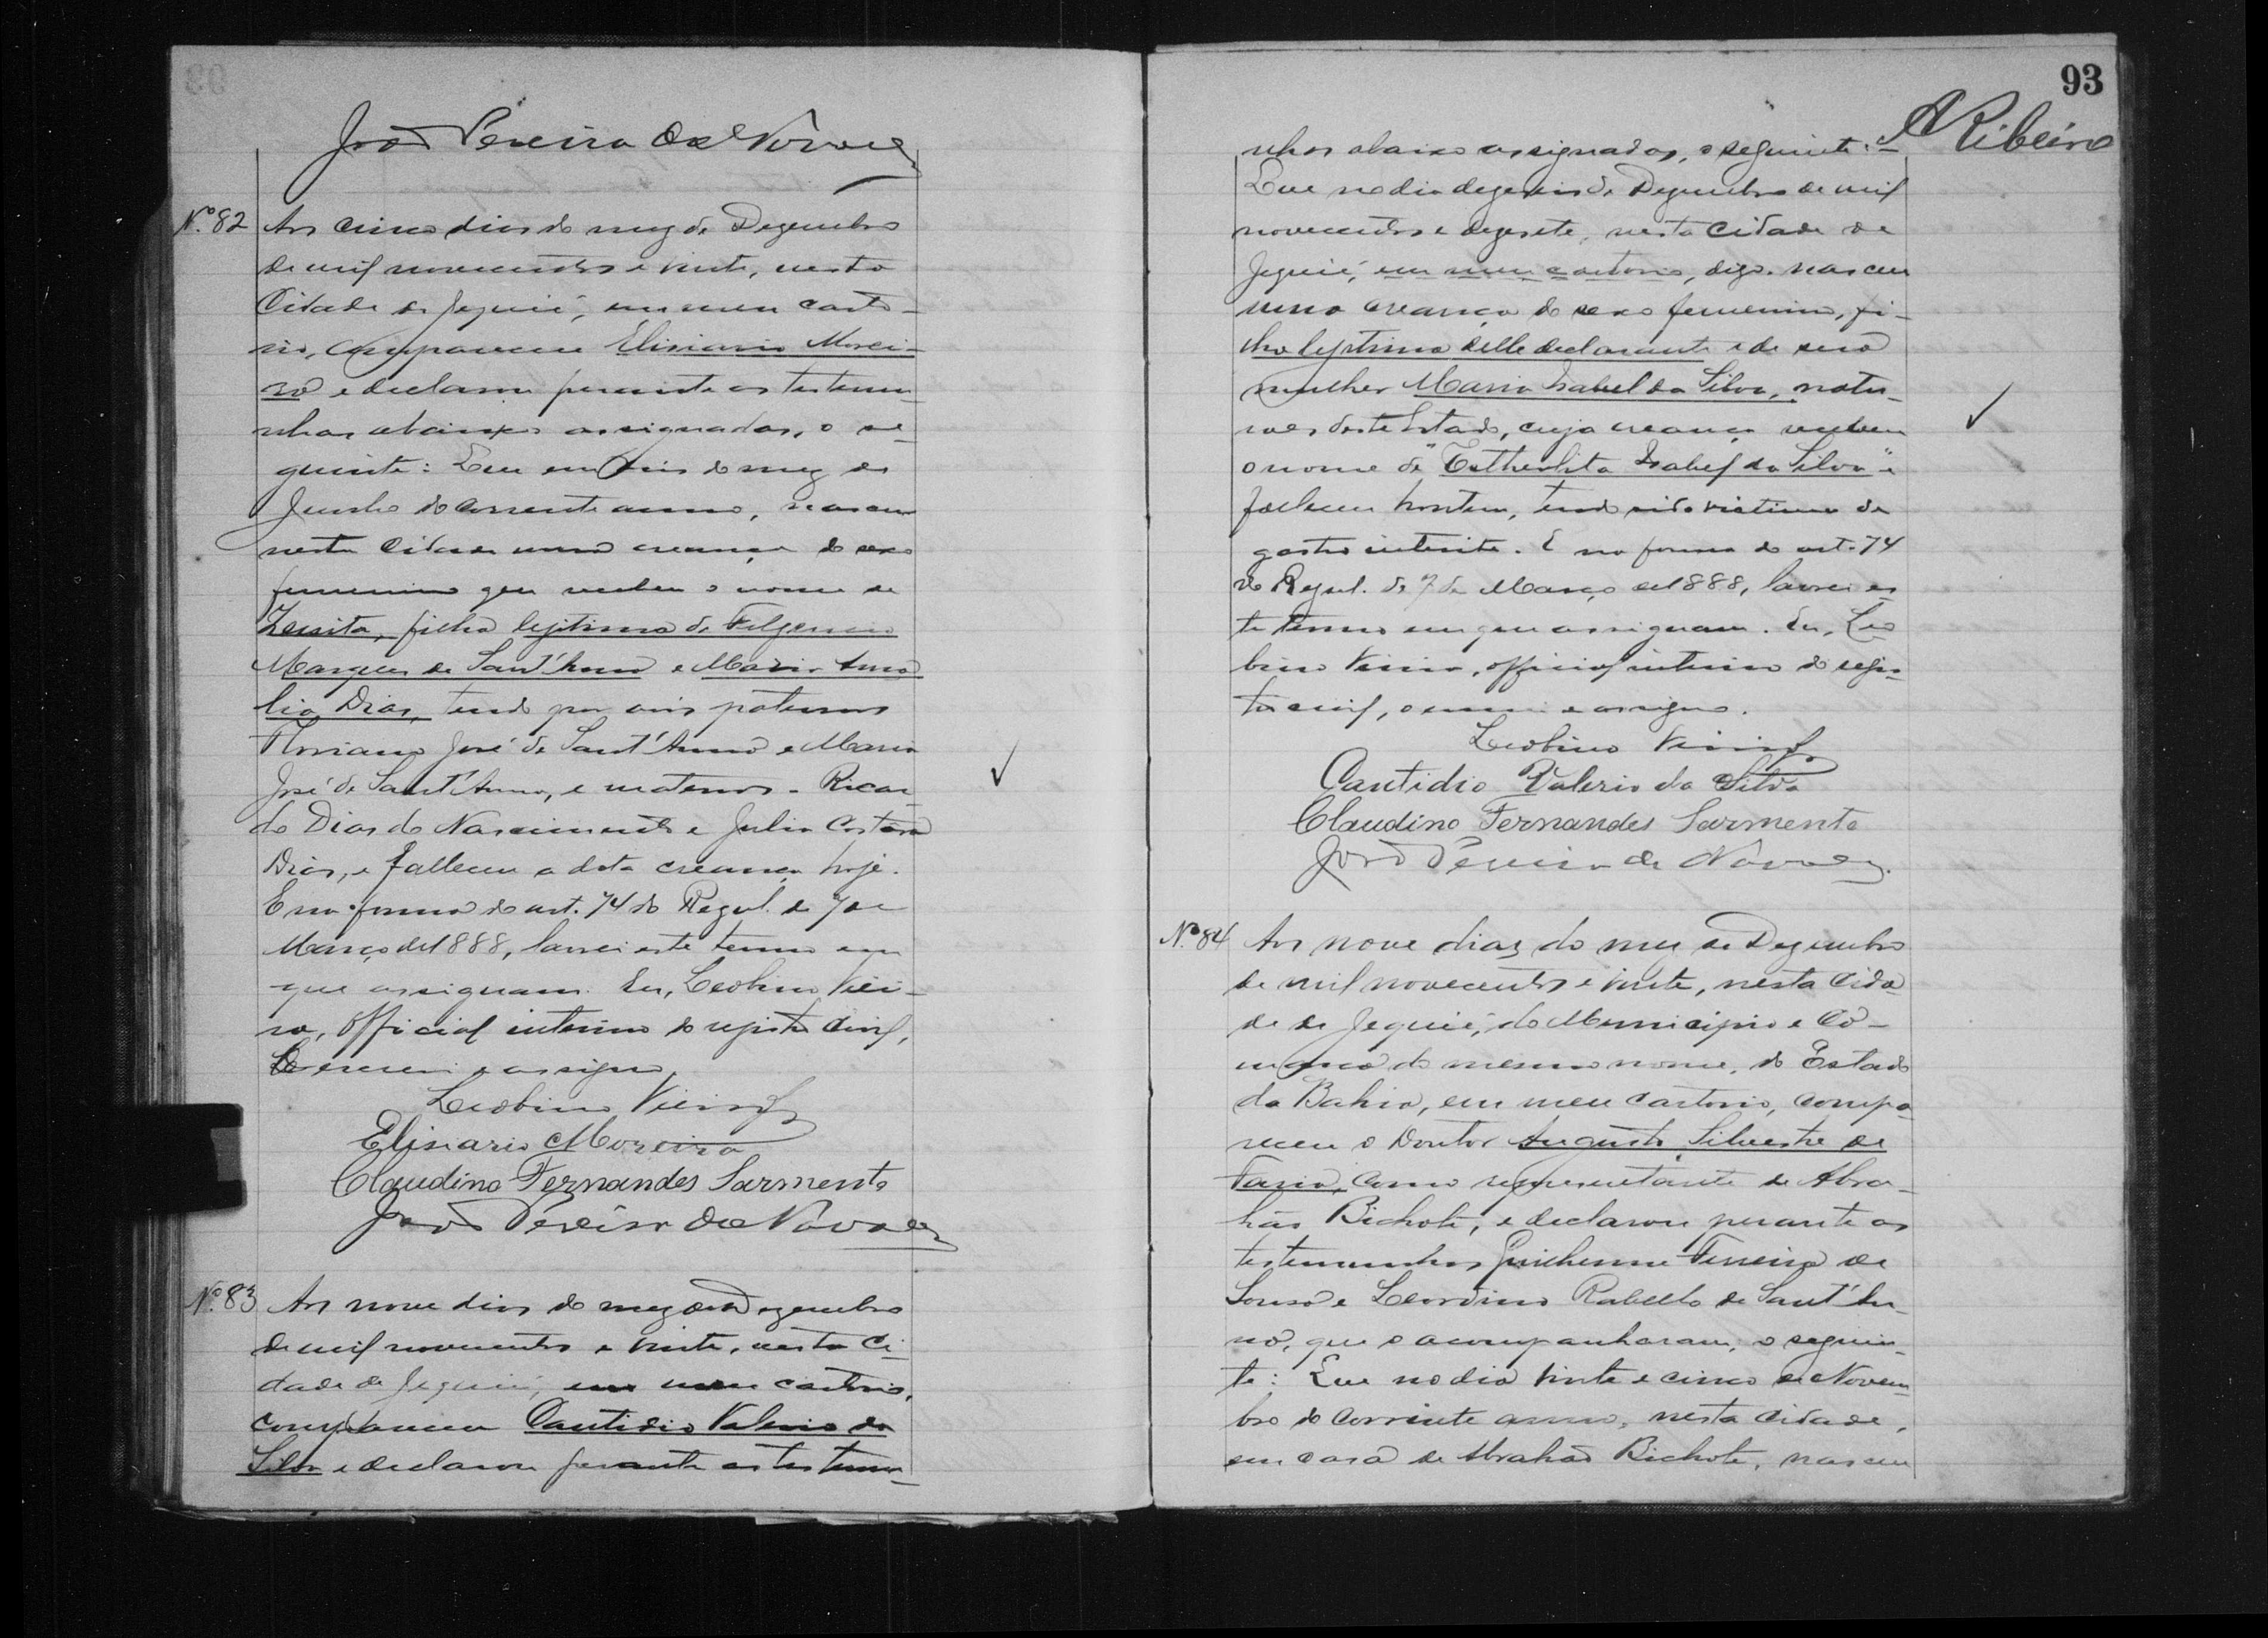 João Pereira de Novaes
Nº 82 Aos cinco dias do mez de Dezembro
de mil novecentos e vinte, nesta
Cidade de Jequié, em meu carto-
rio, compareceu Elisiario Morei-
ra e declarou perante as testemu-
nhas abaixo assignadas, o se-
guinte: Que em seis do mez de
Junho do corrente anno, nasceu
nesta Cidade uma creança do sexo
femenino que recebeu o nome de
Zeusita, filha legitima de
Marques de Sant'Anna e Maria Ama-
lia Dias, tendo por avós paternos
Floriano José de Sant'Anna e Maria
José de Sant'Anna, e maternos - Ricar-
do Dias do Nascimento e Julia
Dias, e falleceu a dita creança hoje.
E na forma do art. 74 do Regul. de 7 de
Março de 1888, lavrei este termo em
que assignam. Eu, Leobino Viei-
ra, official interino do registo civil,
o escrevi e assigno.
Leobino Vieira
Elisiario Moreira
Claudino Fernandes Sarmento
João Pereira de Novaes
Nº 83 Aos nove dias do mez de Dezembro
de mil novecentos e vinte, nesta Ci-
dade de Jequié, em meu cartorio,
compareceu Cantidio Valerio da
Silva e declarou perante as testemu-
93
A Ribeiro
nhas abaixo assignadas, o seguinte:-
Que no dia dezeseis de Dezembro de mil
novecentos e dezesete, nesta Cidade de
Jequié, em meu cartorio, digo. nasceu
uma creança do sexo femenino, fi-
lha legitima delle declarante e de sua
mulher Maria Isabel da Silva, natu-
raes deste Estado, cuja creança recebeu
o nome de "Estherlita Isabel da Silva" e
falleceu hontem, tendo sido victima de
gastro interite. E na forma do art. 74
do Regul. de 7 de Março de 1888, lavrei es-
te termo em que assignam. Eu, Leo-
bino Vieira, official interino do regis-
to civil, o escrevi e assigno.
Leobino Vieira
Cantidio Valerio da Silva
Claudino Fernandes Sarmento
João Pereira de Novaes.
Nº 84 Aos nove dias do mez de Dezembro
de mil novecentos e vinte, nesta Cida-
de de Jequié, do Municipio e Co-
marca do mesmo nome, do Estado
da Bahia, em meu cartorio, compa-
receu o Doutor Augusto Silvestre de
Faria, como representante de Abra-
hão Bichote, e declarou perante as
testemunhas Guilherme Ferreira de
Souza e Leordino Rabello de Sant'An-
na, que o acompanharam, o seguin-
te: Que no dia vinte e cinco de Novem-
bro do corrente anno, nesta Cidade,
em casa de Abrahão Bichote, nasceu